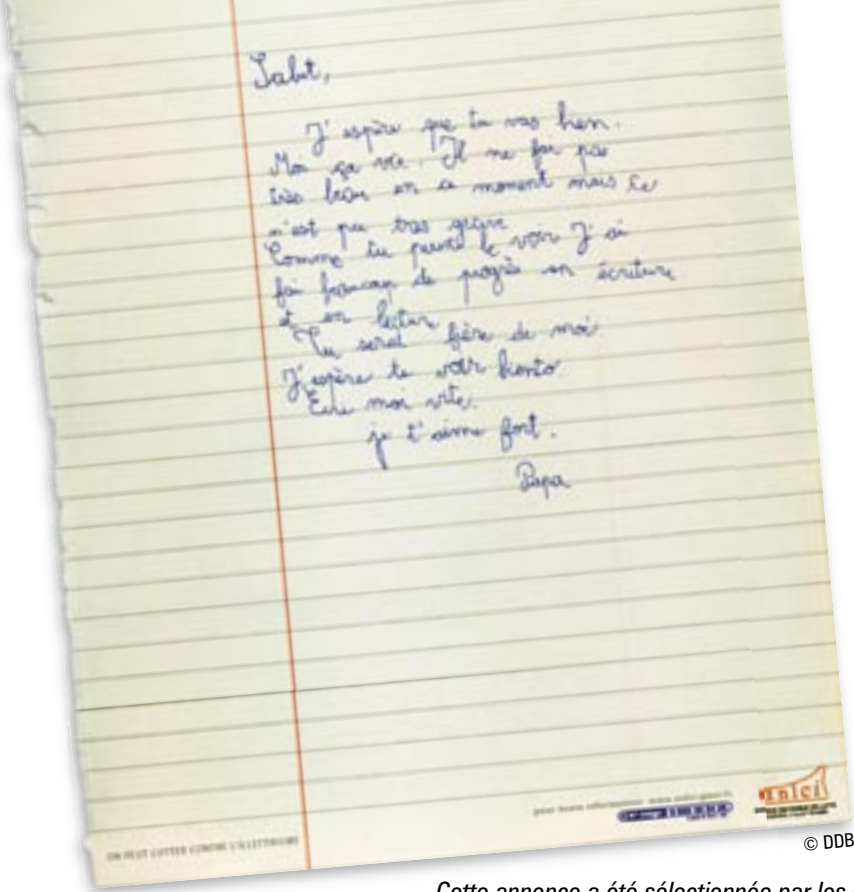 Salut,
J'espère que tu vas bien.
Moi ça va. Il ne fai pas
très beau en ce moment mais ce
n'est pas tras grave
Comme tu peux le voir J'ai
fai beaucoup de progrès en écriture
et en lecture
Tu serai fière de moi
J'espère te voir biento.
Ecri moi vite.
je t'aime fort.
Papa
ON PEUT LUTTER CONTRE L'ILLETTRISME
pour toute information
anlci
© DDB
Cette annonce a été sélectionnée par les